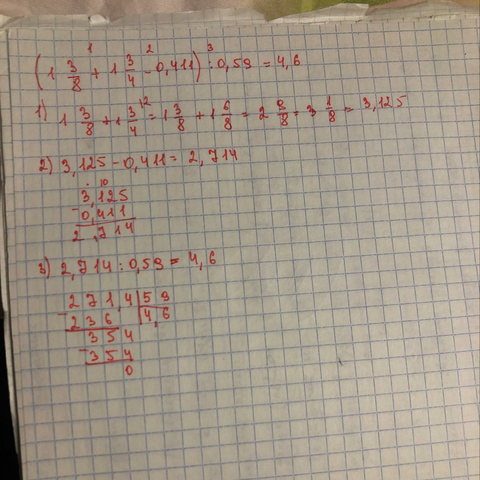 1 2 3
(1 3/8 + 1 3/4 - 0,411) : 0,59 = 4,6
1) 1 3/8 + 1 3/4 |2 = 1 3/8 + 1 6/8 = 2 9/8 = 3 1/8 = 3,125
2) 3,125 - 0,411 = 2,714
. 10
3,125
- 0,411
2,714
3) 2,714 : 0,59 = 4,6
271,4 | 59
- 236 | 4,6
354
- 354
0